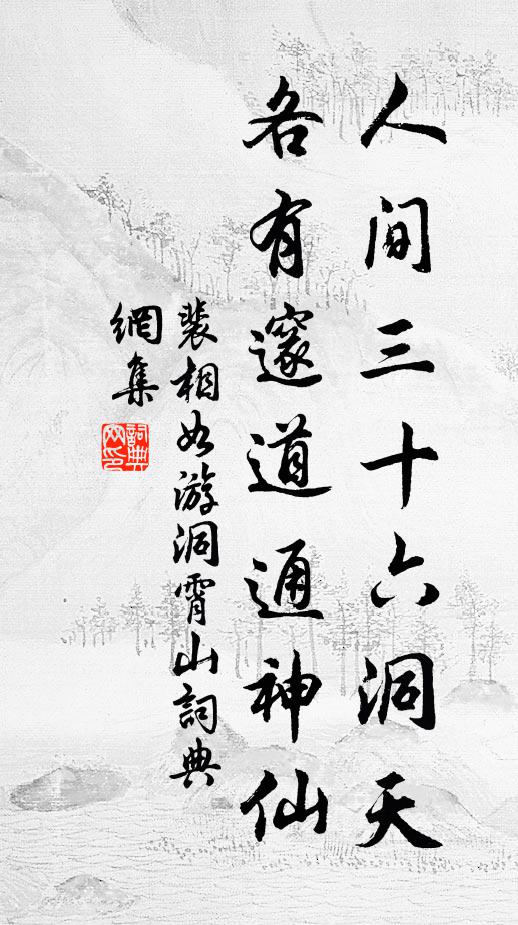 人间三十六洞天
各有邃道通神仙
裴相如游洞霄山詞典
網集
詞典
网印